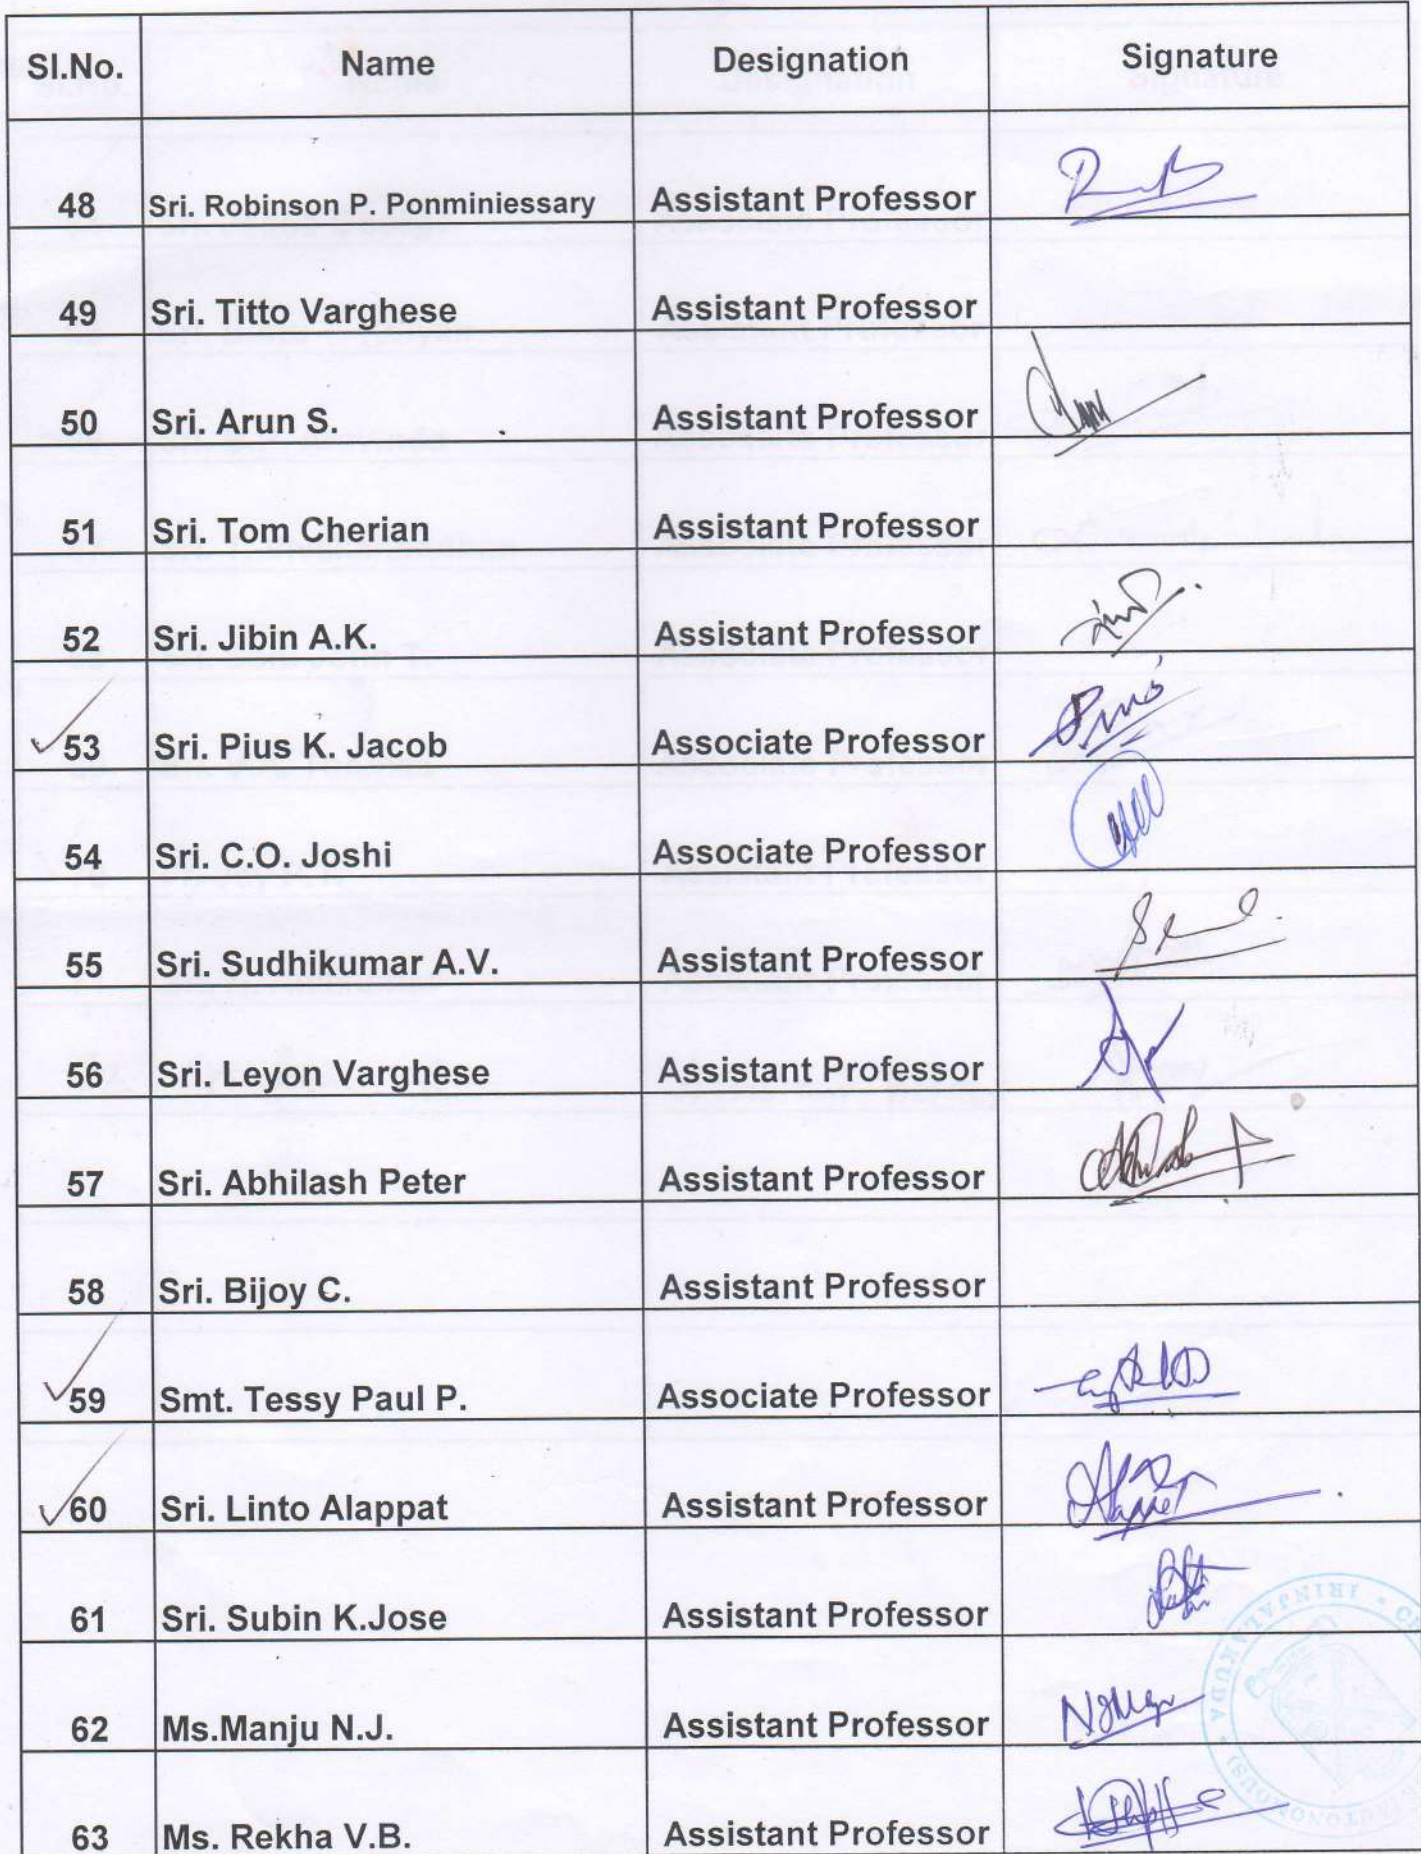 Sl.No. Name Designation Signature
48 Sri. Robinson P. Ponminiessary Assistant Professor
49 Sri. Titto Varghese Assistant Professor
50 Sri. Arun S. Assistant Professor
51 Sri. Tom Cherian Assistant Professor
52 Sri. Jibin A.K. Assistant Professor
53 Sri. Pius K. Jacob Associate Professor
54 Sri. C.O. Joshi Associate Professor
55 Sri. Sudhikumar A.V. Assistant Professor
56 Sri. Leyon Varghese Assistant Professor
57 Sri. Abhilash Peter Assistant Professor
58 Sri. Bijoy C. Assistant Professor
59 Smt. Tessy Paul P. Associate Professor
60 Sri. Linto Alappat Assistant Professor
61 Sri. Subin K.Jose Assistant Professor
62 Ms.Manju N.J. Assistant Professor
63 Ms. Rekha V.B. Assistant Professor
IRINJALAKUDA